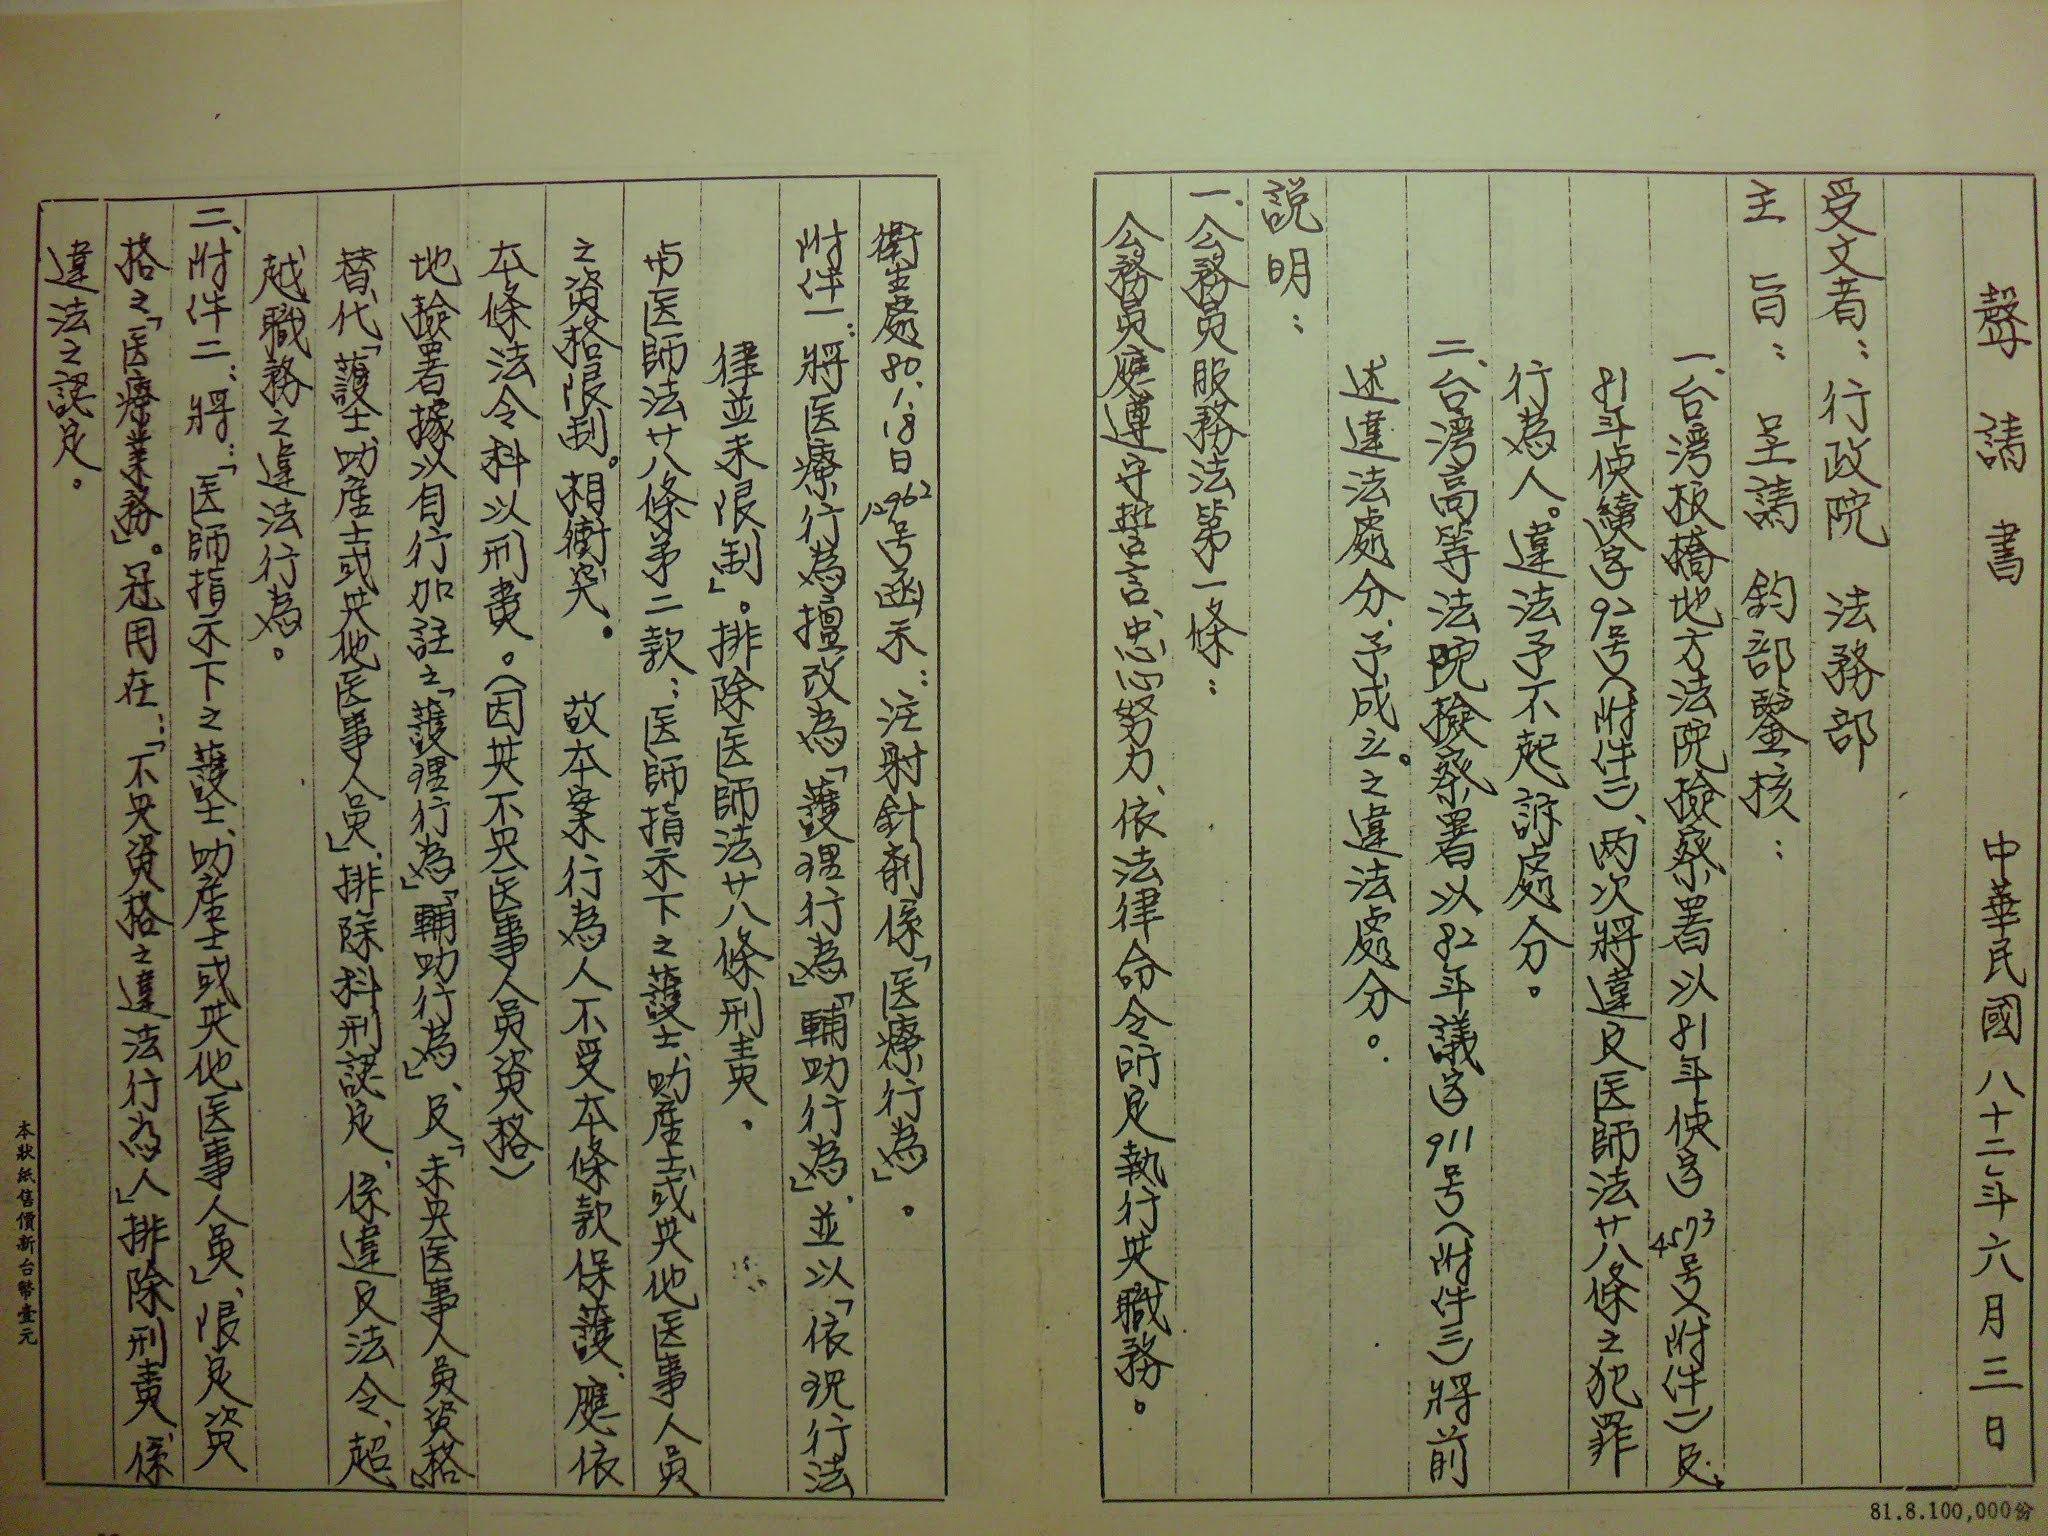 聲請書 中華民國八十二年六月三日
受文者：行政院 法務部
主旨：呈請 鈞部鑒核：
一、台湾板橋地方法院檢察署以81年偵字4573号(附件一)及
81年偵續字92号(附件二)、两次將違反医師法廿八條之犯罪
行為人。違法予不起訴處分。
二、台湾高等法院檢察署以82年議字911号(附件三)將前
述違法處分、予成立之違法處分。
說明：
一、公務員服務法第一條：
公務員應遵守誓言、忠心努力、依法律命令所定執行其職務。
衛生處80.1.18日12962号函示：注射針劑係「医療行為」。
附件一：將医療行為擅改為「護理行為」「輔助行為」、並以「依現行法
律並未限制」。排除医師法廿八條刑責。
与医師法廿八條第二款：医師指示下之護士、助產士或其他医事人員
之資格限制。相衝突。 故本案行為人不受本條款保護、應依
本條法令科以刑責。(因其不具医事人員資格)
地檢署據以自行加註之「護理行為」「輔助行為」、及「未具医事人員資格」
替代「護士、助產士或其他医事人員」、排除科刑認定、係違反法令、超
越職務之違法行為。
二、附件二：將：「医師指示下之護士、助產士或其他医事人員」、限定資
格之「医療業務」。冠用在：「不具資格之違法行為人」排除刑責、係
違法之認定。
本狀紙售價新台幣壹元
81.8.100,000份